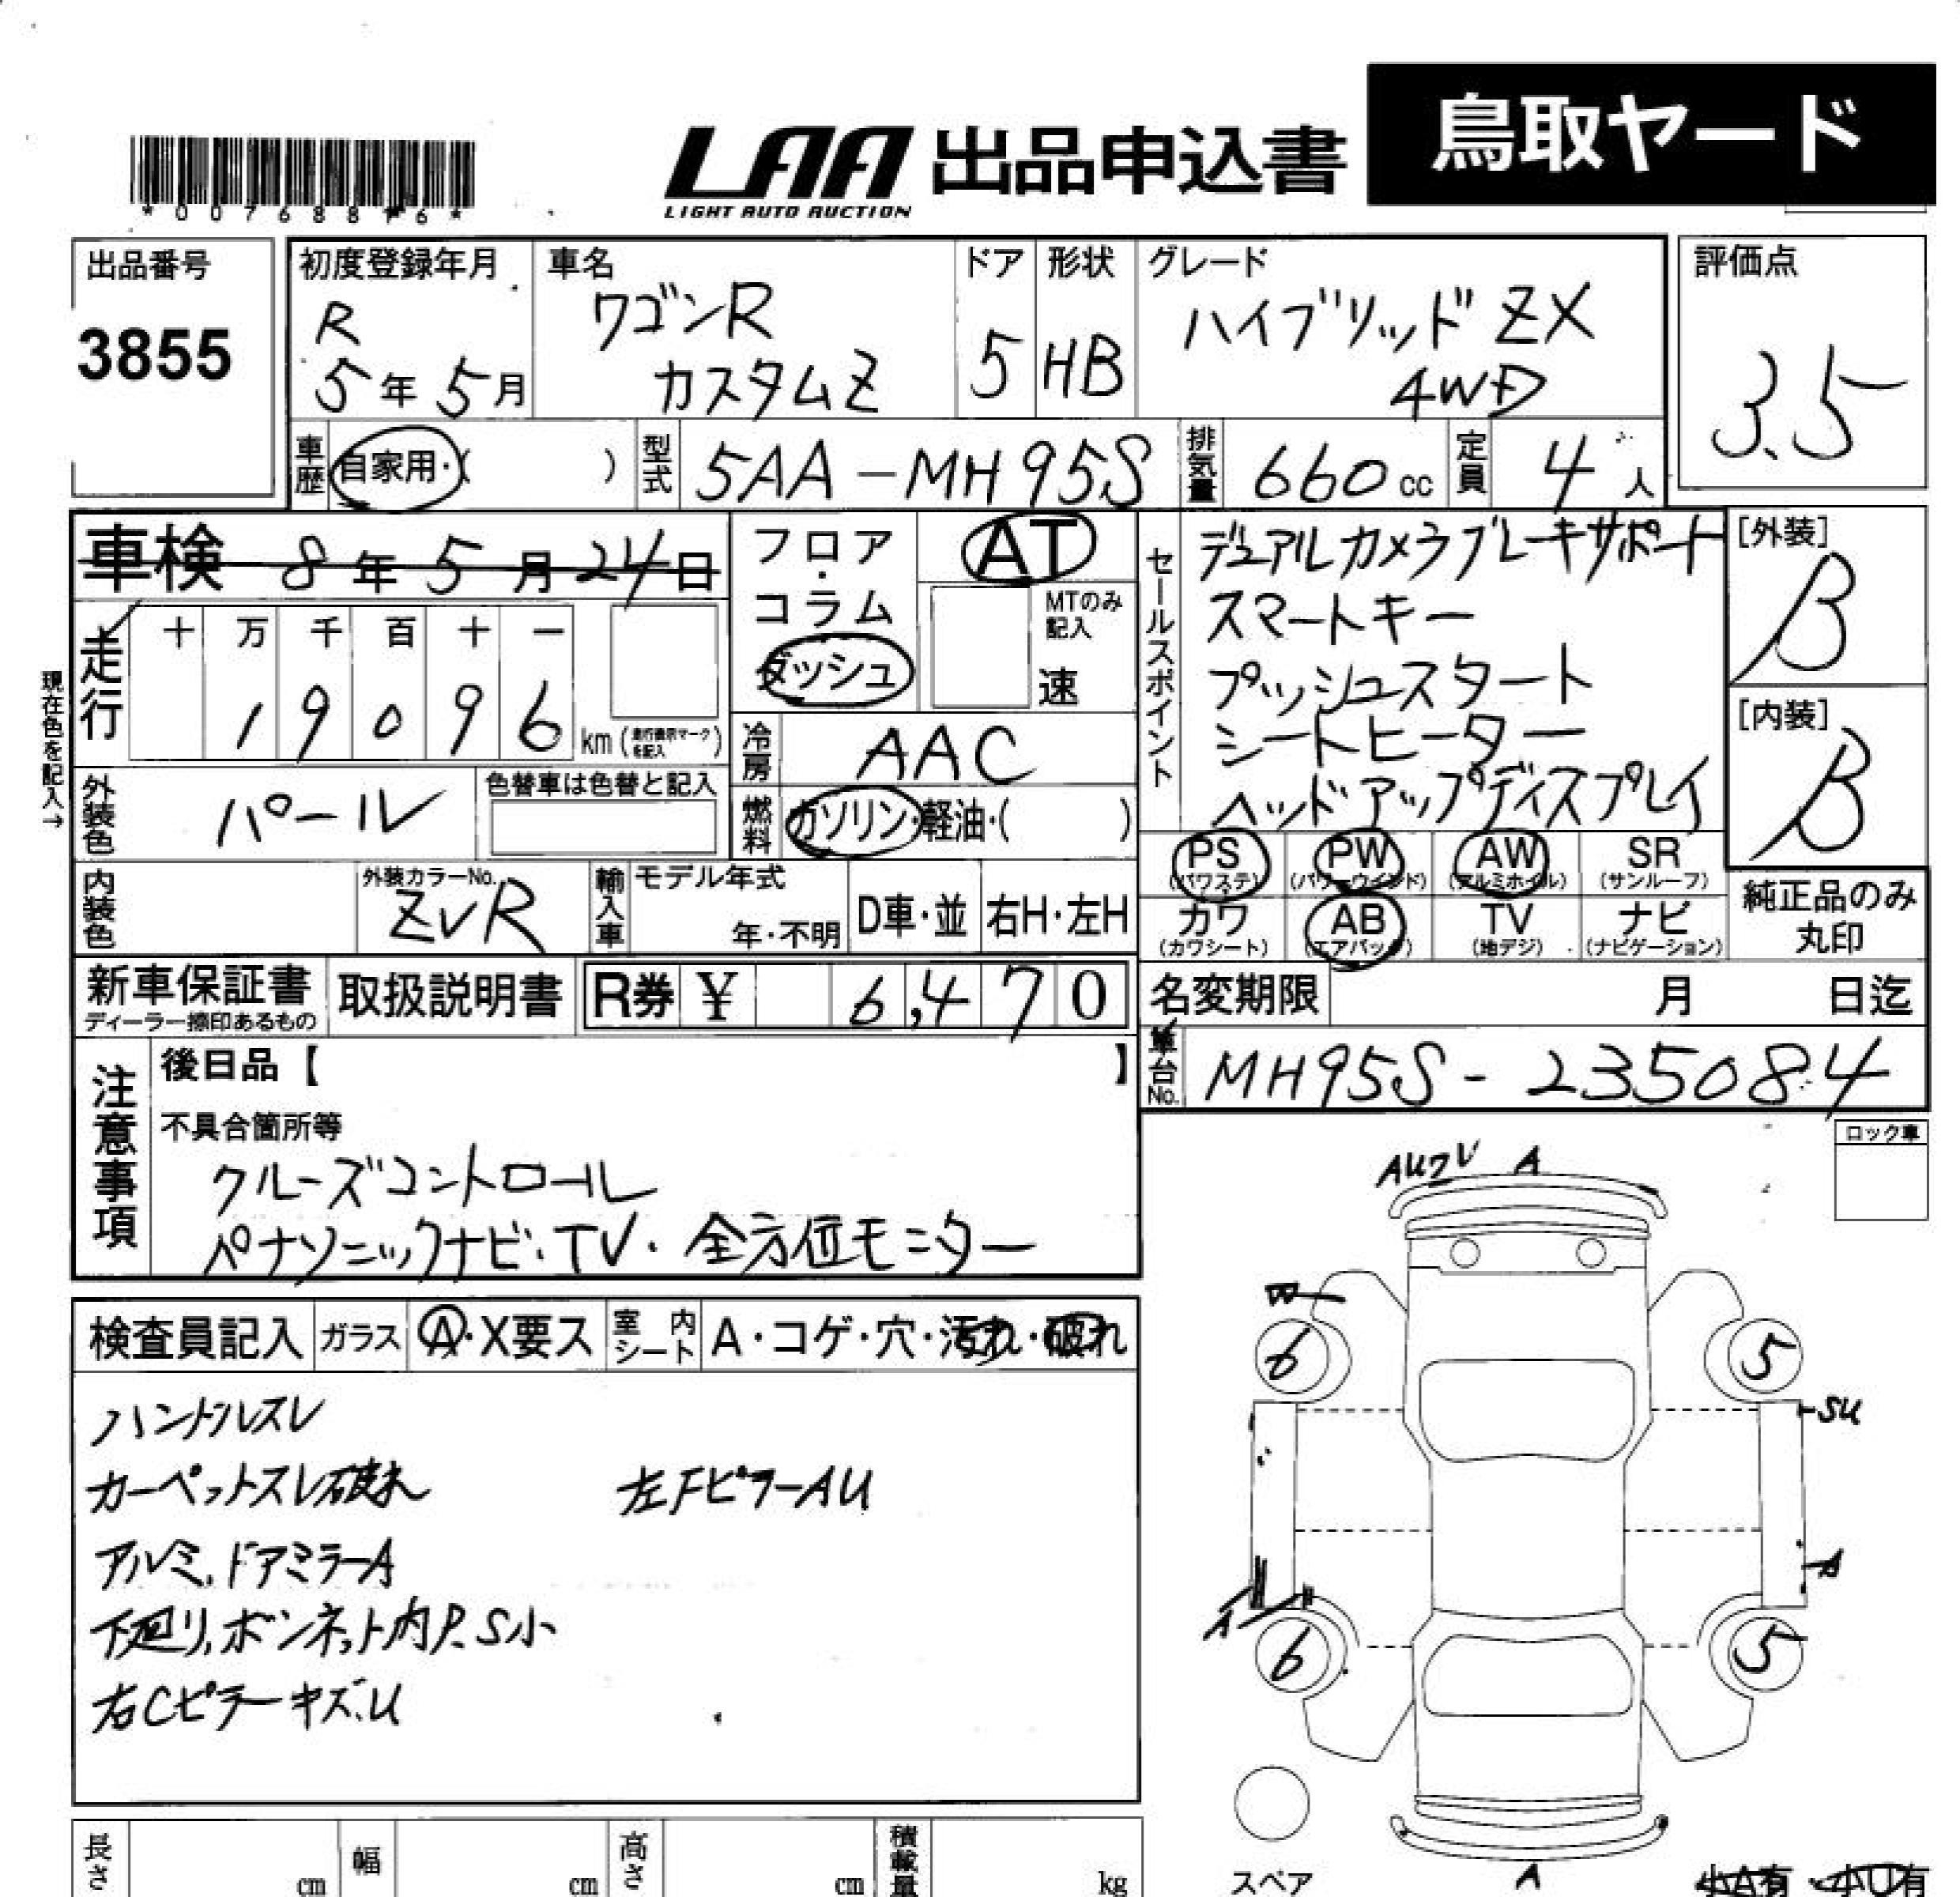 鳥取ヤード
LAA 出品申込書
LIGHT AUTO AUCTION
出品番号
3855
初度登録年月
R
5年5月
車名
ワゴンR
カスタムZ
ドア
5
形状
HB
グレード
ハイブリッドZX
4WD
評価点
3.5
車歴
自家用・( )
型式
5AA-MH95S
排気量
660cc
定員
4人
車検 8年5月24日
走行
十 万 千 百 十 一
1 9 0 9 6
km (走行表示マークを記入)
現在色を記入→
フロア・コラム
ダッシュ
AT
MTのみ記入
速
冷房
AAC
燃料
ガソリン・軽油・( )
外装色
パール
色替車は色替と記入
内装色
外装カラーNo.
ZVR
輸入車
モデル年式
年・不明
D車・並
右H・左H
セールスポイント
デュアルカメラブレーキサポート
スマートキー
プッシュスタート
シートヒーター
ヘッドアップディスプレイ
[外装]
B
[内装]
B
PS
(パワステ)
PW
(パワーウインド)
AW
(アルミホイル)
SR
(サンルーフ)
カワ
(カワシート)
AB
(エアバック)
TV
(地デジ)
ナビ
(ナビゲーション)
純正品のみ
丸印
新車保証書
ディーラー捺印あるもの
取扱説明書
R券 ¥ 6,470
名変期限
月 日迄
車台No.
MH95S-235084
注意事項
後日品【 】
不具合箇所等
クルーズコントロール
パナソニックナビ・TV・全方位モニター
ロック車
検査員記入
ガラス
A・X要ス
室内シート
A・コゲ・穴・汚れ・破れ
ハンドルスレ
カーペットスレ破れ
左FピラーAU
アルミ、ドアミラーA
下廻り、ボンネット内P.S小
右CピラーキズU
A
6
5
SU
A
A
6
5
スペア
A
小A有・小U有
長さ
cm
幅
cm
高さ
cm
積載量
kg